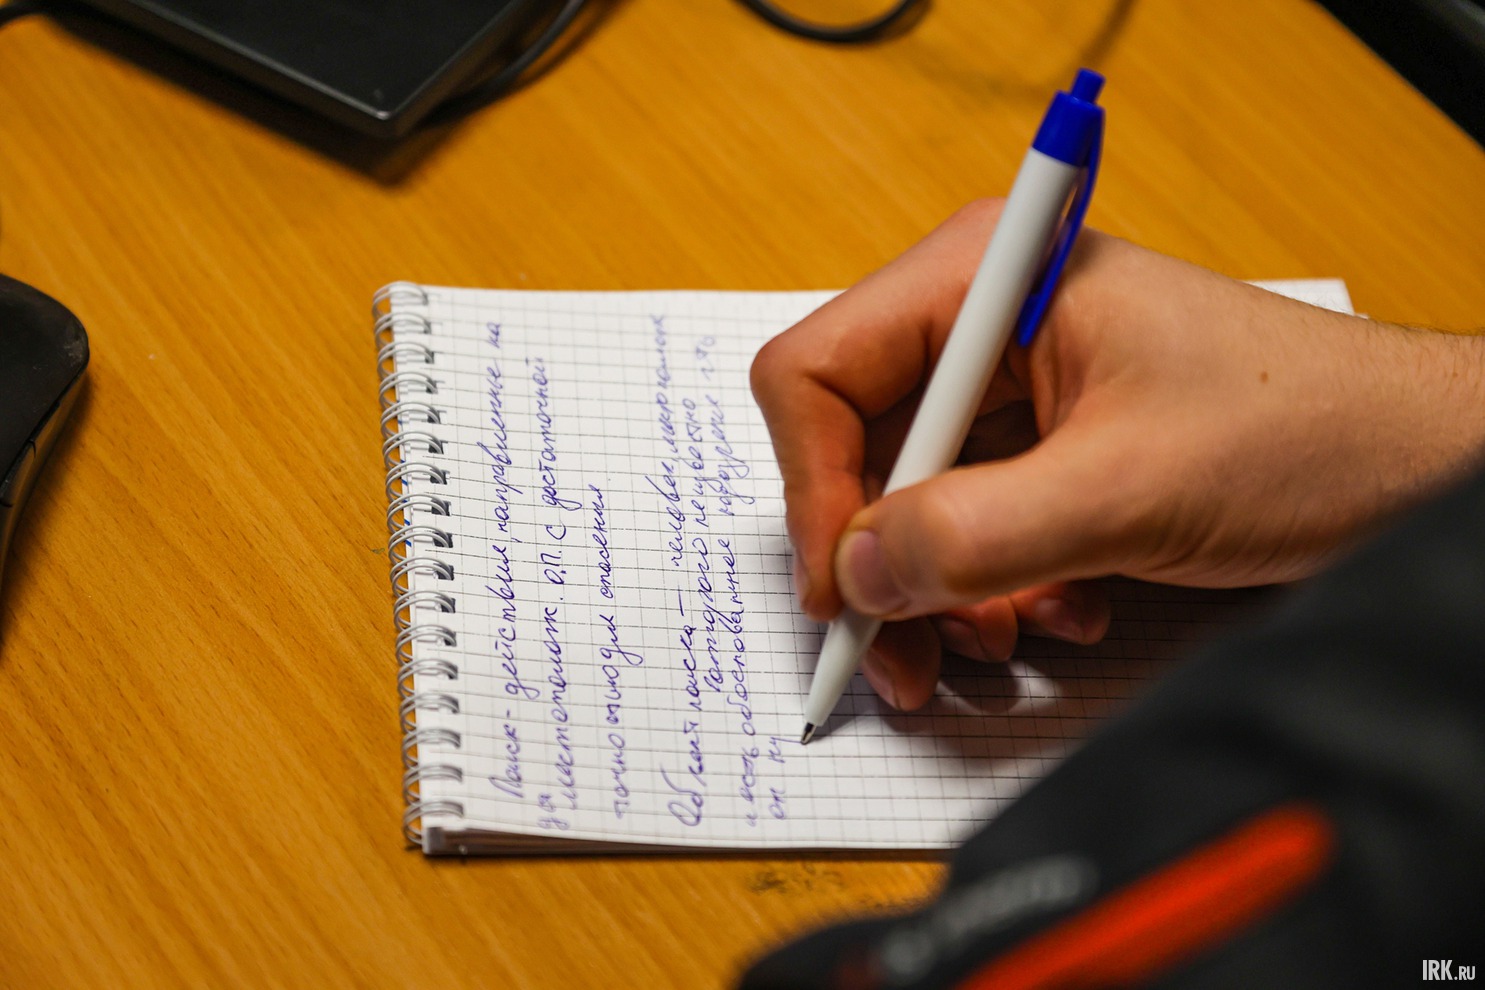 Поиск - действия, направленные на
местополож. О.П. с достаточной
точностью для спасения
Объект поиска — человек,
которого неизвестно
и есть обоснованное подозрение что
он ну
IRK.RU